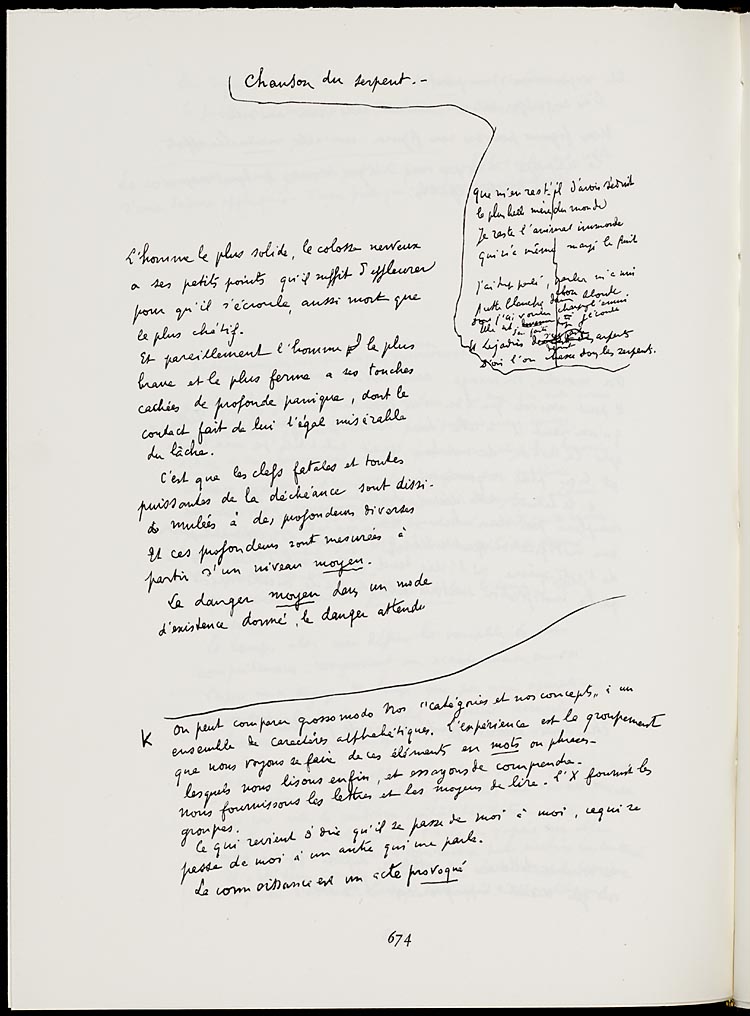 Chanson du serpent. –
Que m'en reste-t-il d'avoir séduit
la plus belle mère du monde
Je reste l'animal immonde
Qui n'a même mangé le fruit
J'ai trop parlé, parler m'a nui
L'homme le plus solide, le colosse nerveux
a ses petits points qu'il suffit d'effleurer
pour qu'il s'écroule, aussi mort que
le plus chétif.
Et pareillement l'homme le plus
brave et le plus ferme a ses touches
cachées de profonde panique, dont le
contact fait de lui l'égal misérable
du lâche.
C'est que les clefs fatales et toutes
puissantes de la déchéance sont dissi-
mulées à des profondeurs diverses
Et ces profondeurs sont mesurées à
partir d'un niveau moyen.
Le danger moyen dans un mode
d'existence donné, le danger attendu
K On peut comparer grosso modo nos "catégories et nos concepts" à un
ensemble de caractères alphabétiques. L'expérience est le groupement
que nous voyons se faire de ces éléments en mots ou phrases –
lesquels nous lisons enfin, et essayons de comprendre –
Nous fournissons les lettres et les moyens de lire – l'X fournit les
groupes.
Ce qui revient à dire qu'il se passe de moi à moi, ce qui se
passe de moi à un autre qui me parle.
La connaissance est un acte provoqué
674